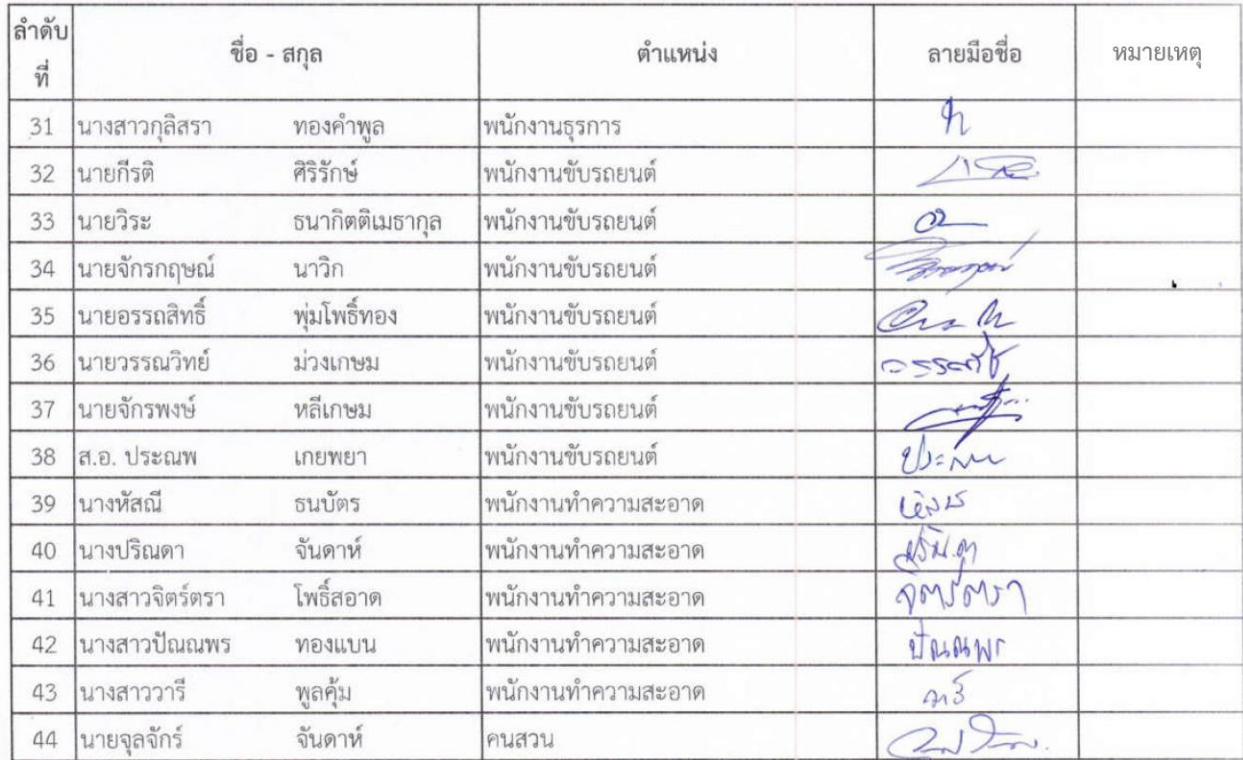 ลำดับที่ ชื่อ - สกุล ตำแหน่ง ลายมือชื่อ หมายเหตุ
31 นางสาวกุลิสรา ทองคำพูล พนักงานธุรการ
32 นายกีรติ ศิริรักษ์ พนักงานขับรถยนต์
33 นายวิระ ธนากิตติเมธากุล พนักงานขับรถยนต์
34 นายจักรกฤษณ์ นาวิก พนักงานขับรถยนต์
35 นายอรรถสิทธิ์ พุ่มโพธิ์ทอง พนักงานขับรถยนต์
36 นายวรรณวิทย์ ม่วงเกษม พนักงานขับรถยนต์
37 นายจักรพงษ์ หลีเกษม พนักงานขับรถยนต์
38 ส.อ. ประณพ เกยพยา พนักงานขับรถยนต์
39 นางหัสณี ธนบัตร พนักงานทำความสะอาด
40 นางปริณดา จันดาห์ พนักงานทำความสะอาด
41 นางสาวจิตร์ตรา โพธิ์สอาด พนักงานทำความสะอาด จิตร์ตรา
42 นางสาวปัณณพร ทองแบน พนักงานทำความสะอาด ปัณณพร
43 นางสาววารี พูลคุ้ม พนักงานทำความสะอาด วารี
44 นายจุลจักร์ จันดาห์ คนสวน